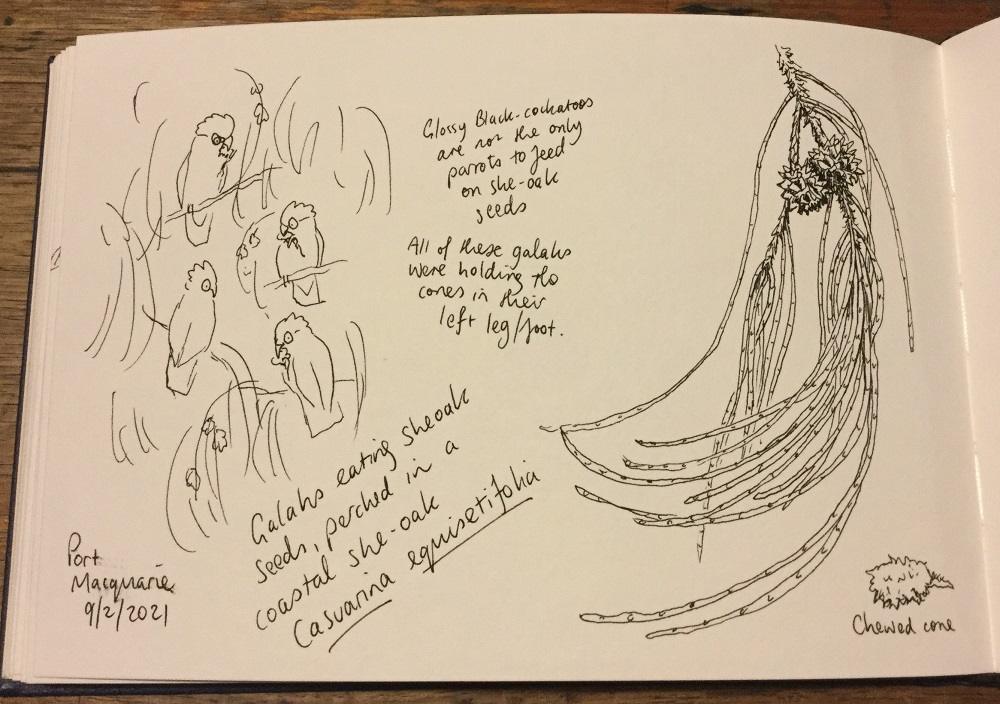 Glossy Black-cockatoos
are not the only
parrots to feed
on she-oak
seeds
All of these galahs
were holding the
cones in their
left leg/foot.
Galahs eating sheoak
seeds, perched in a
coastal she-oak
Casuarina equisetifolia
Port
Macquarie
9/2/2021
Chewed cone